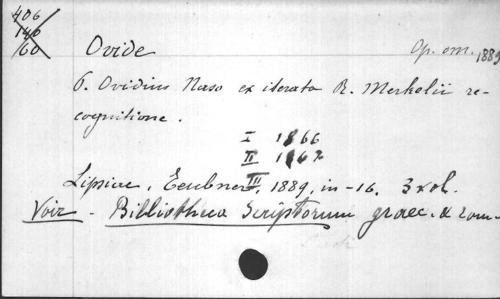 406
140
60
Ovide
Op. om. 1889
6. Ovidius Naso ex iterata R. Merkelii re-
cognitione.
I 1866
II 1862
III
Lipsiae, Teubner, 1889, in-16. 3 vol.
Voir - Bibliotheca Scriptorum graec. & rom-